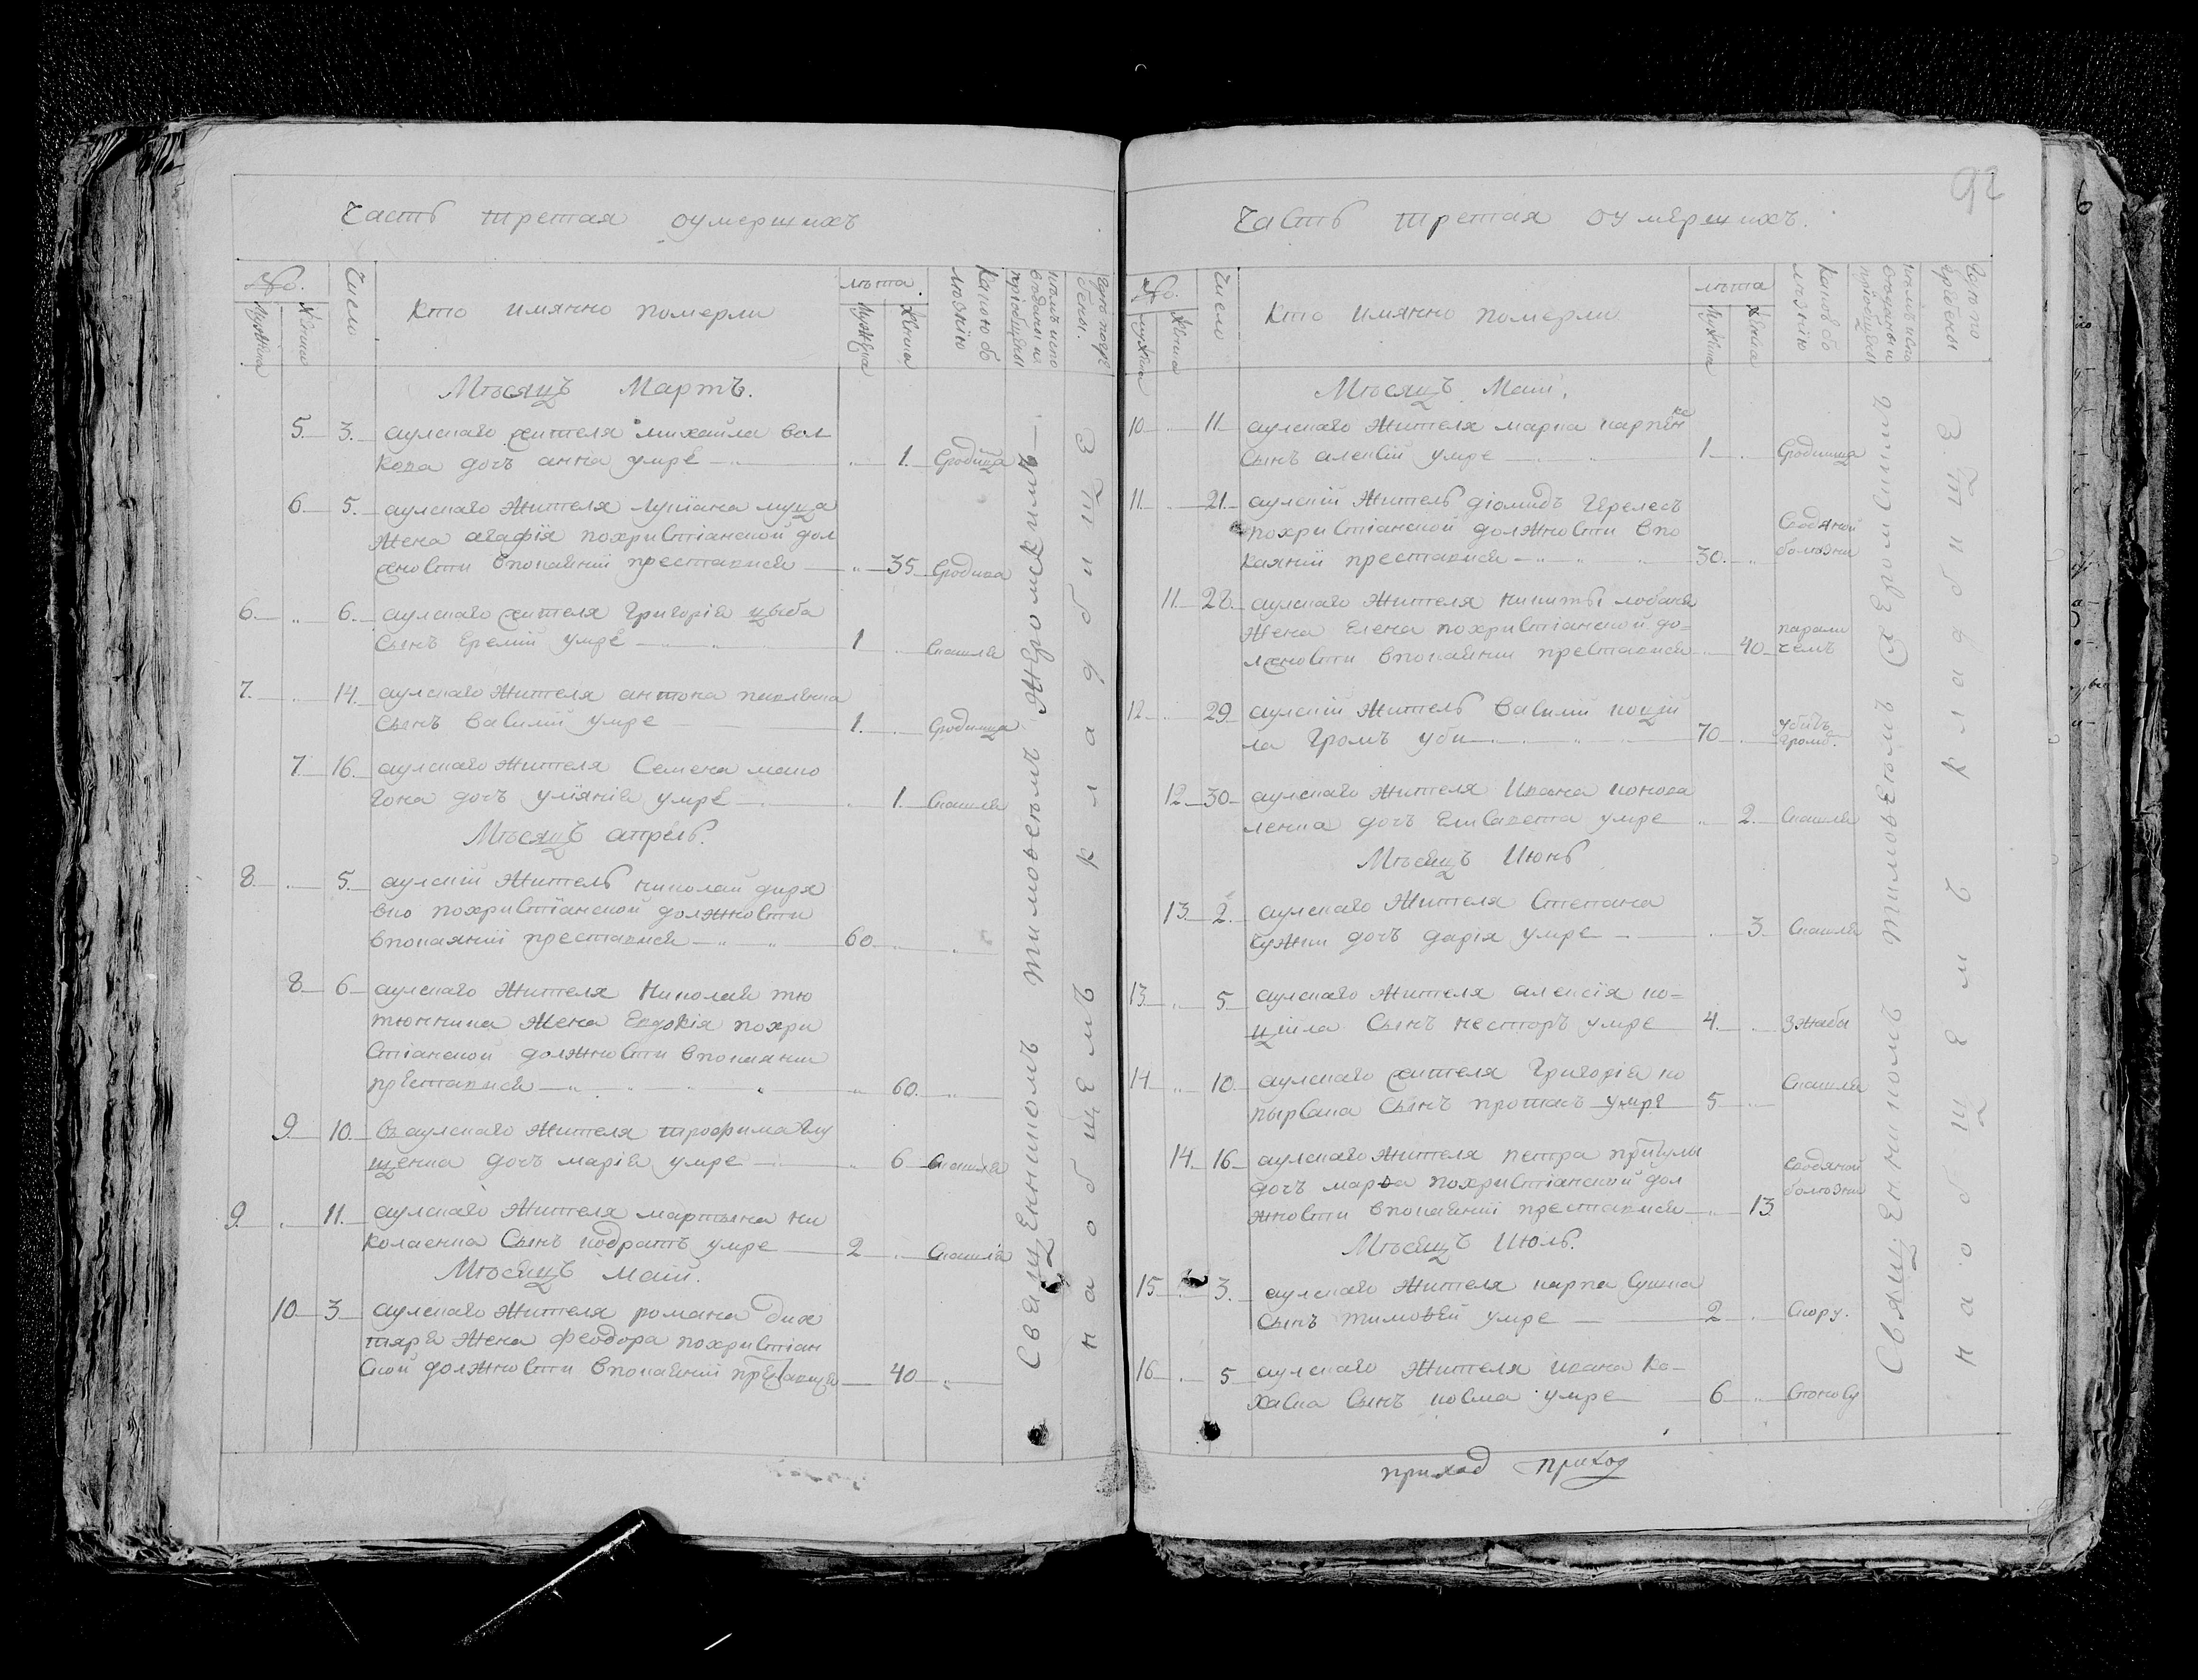 Часть третая оумершихъ
№.
Мужеска
Женска
Число
Кто имянно померли
лѣта.
Мужеска
Женска
Какою бо
лѣзнію
кѣмъ испо
вѣданы и
пріобщены
Гдѣ погре
бены.
Мѣсяцъ Мартъ.
5. 3. аулскаго жителя михайла вол
кова дочъ анна умре 1. Сродимца
6 5. аулскаго жителя лукіана муца
жена агафія похристіанской дол
жности впокаяніи преставися 35 Сродива
6. 6. аулскаго жителя григорія цыба
сынъ Еремій умре 1 Скашля
7. 14. аулскаго жителя антона
сынъ василій умре 1. Сродимца
7 16. аулскаго жителя Семена мако
гона дочъ уліянія умре 1. Скашля
Мѣсяцъ апрель.
8. 5. аулскій житель николай диря
вко похристіанской должности
впокаяніи преставися 60
8 6 аулскаго жителя николая тю
тюнника жена Евдокія похри
стіанской должности впокаянии
преставися 60.
9. 10. аулскаго жителя трофима глу
щенка дочъ марія умре 6 Скашля
9. 11. аулскаго жителя мартына ни
колаенка сынъ кодратъ умре 2 Скашля
Мѣсяцъ маій.
10 3 аулскаго жителя романа дих
тяря жена феодора похристіан
ской должности впокаяніи преставися 40
Священникомъ Тимовѣемъ Жеромскимъ
на общемъ кладбищѣ
92
Часть третая оумершихъ.
№.
мужеска
Женска
Число
Кто имянно померли
лѣта
Мужеска
Женска
Какою бо
лѣзнію
кѣмъ испо
вѣданы и
пріобщены
Гдѣ по
гребены
Мѣсяцъ Маій.
10 11 аулскаго жителя марка карпенке
сынъ алексій умре 1 Сродимца
11. 21. аулскій житель діомидъ Черелесъ
похристіанской должности впо
каяніи преставися 30. Сводяной
болѣзни
11. 28. аулскаго жителя никиты
жена Елена похристіанской до=
лжности впокаянии преставися 40 парали
чемъ
12. 29 аулскій житель василій коцій
ла громъ уби 70 убитъ
громо.
12 30. аулскаго жителя Ивана конова
ленка дочъ Елисавета умре 2. Скашля
Мѣсяцъ Июнь
13 2. аулскаго жителя Степана
дочъ дарія умре 3. Скашля
13. 5 аулскаго жителя алексія ко=
ційла сынъ несторъ умре 4. Зжабы
14 10. аулскаго жителя григорія ко
сынъ протасъ умре 5 Скашля
14. 16. аулскаго жителя петра притулы
дочъ марѳа похристіанской дол
жности впокаяніи преставися 13 Сводяной
болѣзни
Мѣсяцъ Июль.
15 3. аулскаго жителя карпа Сушка
сынъ тимовей умре 2 Скору.
16 5 аулскаго жителя ивана ко-
сынъ козма умре 6
Священникомъ Тимовеемъ Жеромскимъ
на общемъ кладбищѣ
приход приход